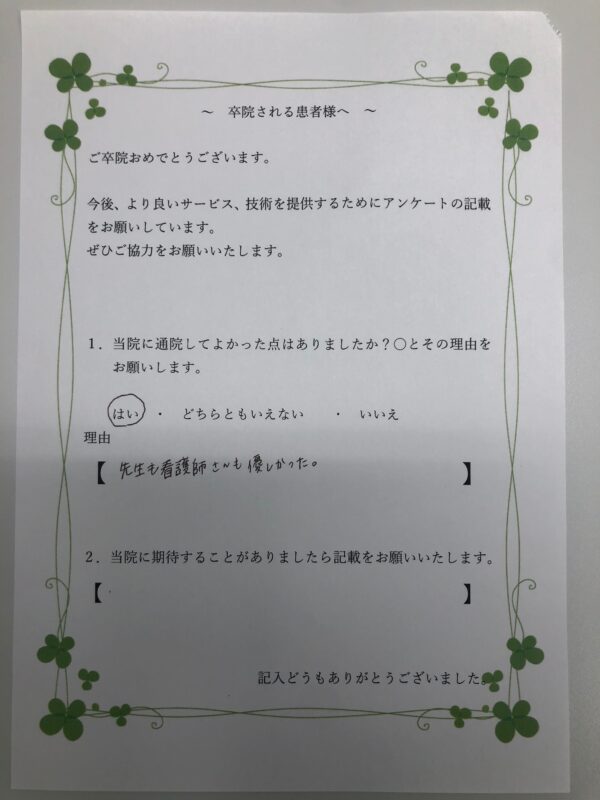 ～　卒院される患者様へ　～
ご卒院おめでとうございます。
今後、より良いサービス、技術を提供するためにアンケートの記載
をお願いしています。
ぜひご協力をお願いいたします。
１．当院に通院してよかった点はありましたか？〇とその理由を
お願いします。
はい　・　どちらともいえない　　・　いいえ
理由
【 先生も看護師さんも優しかった。 】
２．当院に期待することがありましたら記載をお願いいたします。
【　】
記入どうもありがとうございました。